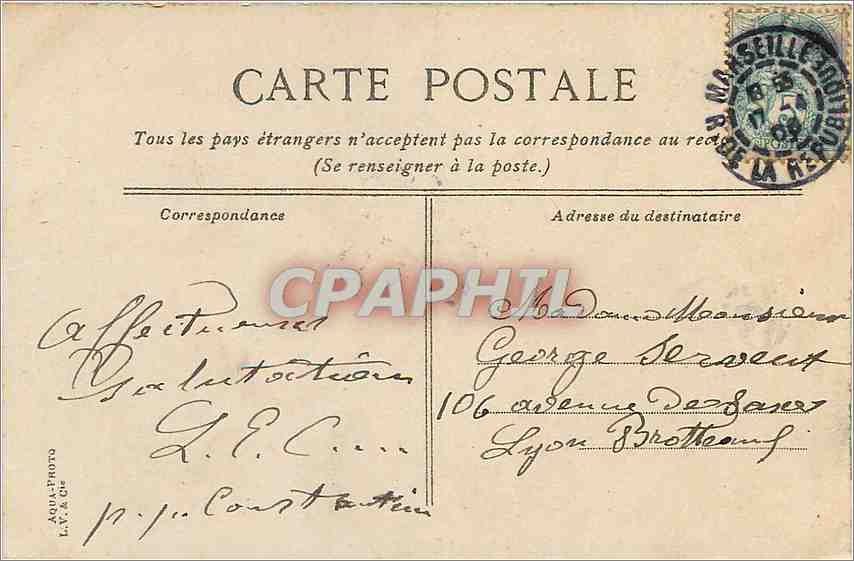 CARTE POSTALE
Tous les pays étrangers n'acceptent pas la correspondance au recto
(Se renseigner à la poste.)
MARSEILLE
R. DE LA RÉPUBLIQUE
17
5
POSTES
Correspondance
Adresse du destinataire
CPAPHIL
Affectueuses
Salutations
L. E. C....
p.p. Constantin
Madame Monsieur
George Servent
106 avenue de Saxe
Lyon Brotteaux
AQUA-PHOTO
L.V. & Cie